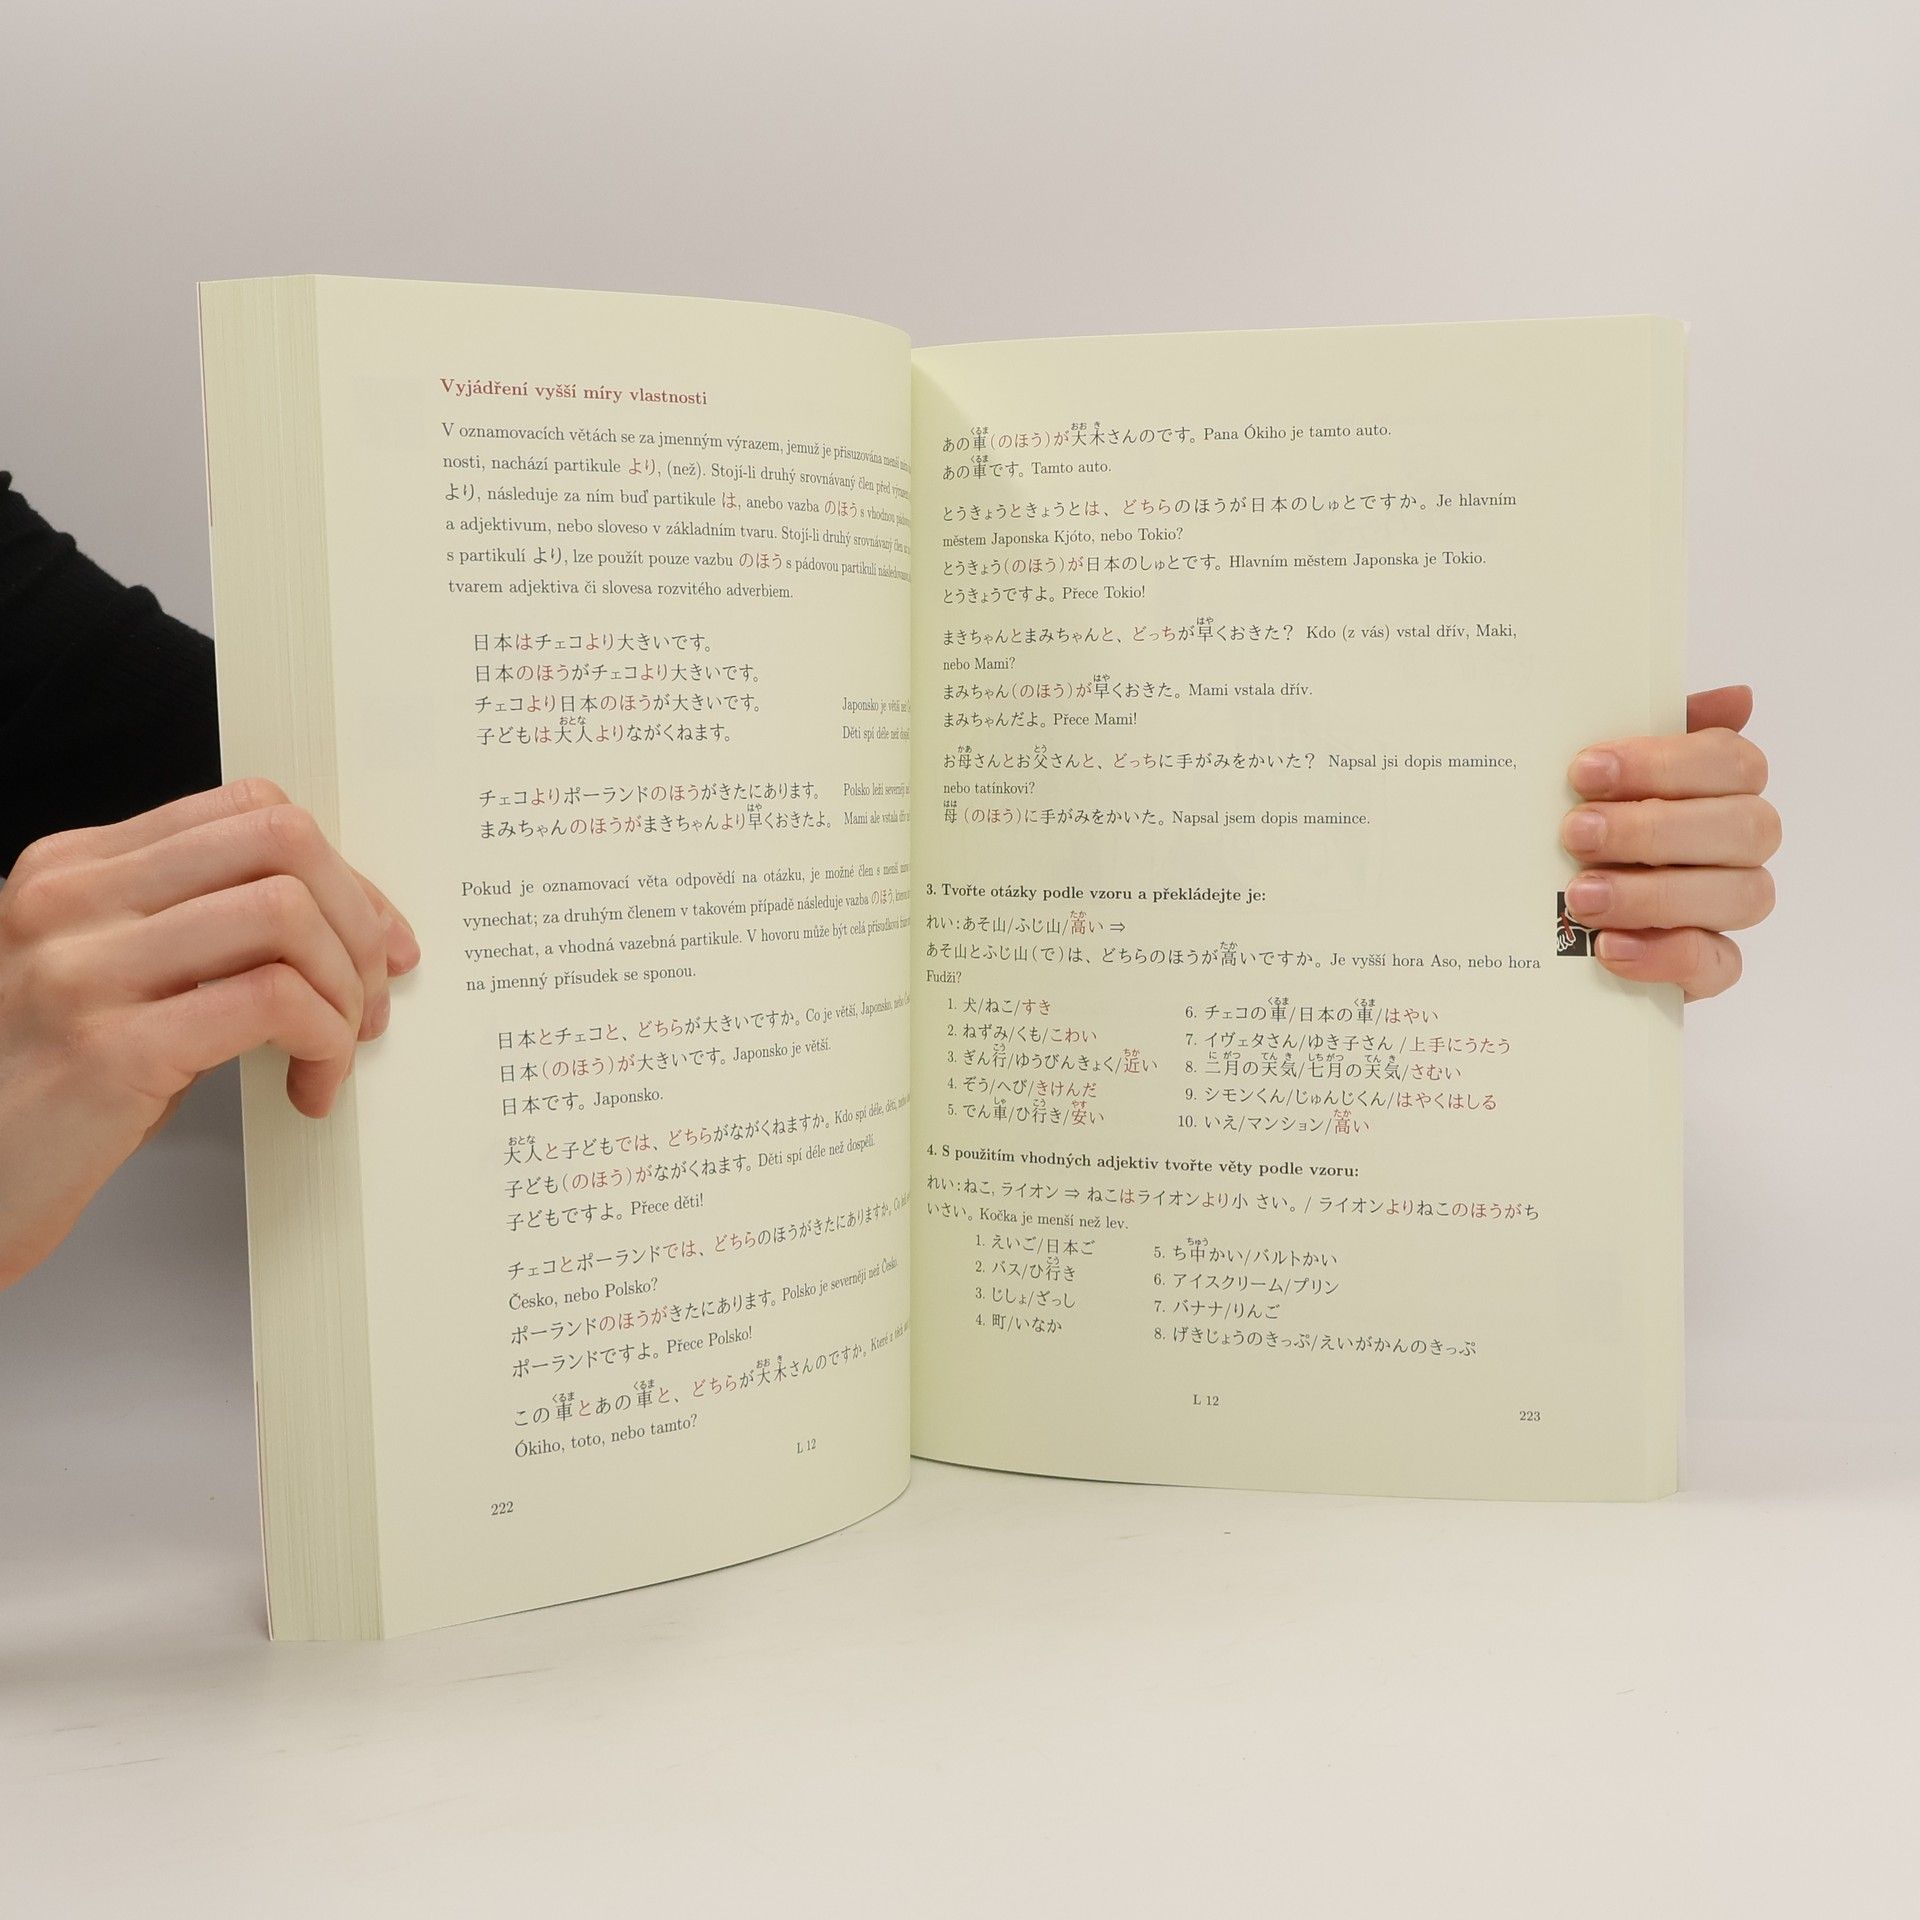 Vyjádření vyšší míry vlastnosti
V oznamovacích větách se za jmenným výrazem, jemuž je přisuzována menší míra
nosti, nachází partikule より, (než). Stojí-li druhý srovnávaný člen před výrazem
より, následuje za ním buď partikule は, anebo vazba のほう s vhodnou pádovou
a adjektivum, nebo sloveso v základním tvaru. Stojí-li druhý srovnávaný člen
s partikulí より, lze použít pouze vazbu のほう s pádovou partikulí následovanou
tvarem adjektiva či slovesa rozvitého adverbiem.
日本はチェコより大きいです。
日本のほうがチェコより大きいです。
チェコより日本のほうが大きいです。 Japonsko je větší než
子どもは大人よりながくねます。 Děti spí déle než
おとな
チェコよりポーランドのほうがきたにあります。 Polsko leží severněji
まみちゃんのほうがまきちゃんより早くおきたよ。 Mami ale vstala dřív
はや
Pokud je oznamovací věta odpovědí na otázku, je možné člen s menší mírou
vynechat; za druhým členem v takovém případě následuje vazba のほう,
vynechat, a vhodná vazebná partikule. V hovoru může být celá přísudková
na jmenný přísudek se sponou.
日本とチェコと、どちらが大きいですか。Co je větší, Japonsko, nebo
日本(のほう)が大きいです。Japonsko je větší.
日本です。Japonsko.
おとな
大人と子どもでは、どちらがながくねますか。Kdo spí déle, děti, nebo
子ども(のほう)がながくねます。Děti spí déle než dospělí.
子どもですよ。Přece děti!
チェコとポーランドでは、どちらのほうがきたにありますか。Co
Česko, nebo Polsko?
ポーランドのほうがきたにあります。Polsko je severněji než Česko.
ポーランドですよ。Přece Polsko!
くるま くるま おお き
この車とあの車と、どちらが大木さんのですか。Které z
Ókiho, toto, nebo tamto?
L 12
222
くるま おお き
あの車(のほう)が大木さんのです。Pana Ókiho je tamto auto.
くるま
あの車です。Tamto auto.
とうきょうときょうとは、どちらのほうが日本のしゅとですか。Je hlavním
městem Japonska Kjóto, nebo Tokio?
とうきょう(のほう)が日本のしゅとです。Hlavním městem Japonska je Tokio.
とうきょうですよ。Přece Tokio!
はや
まきちゃんとまみちゃんと、どっちが早くおきた？ Kdo (z vás) vstal dřív, Maki,
nebo Mami?
はや
まみちゃん(のほう)が早くおきた。Mami vstala dřív.
まみちゃんだよ。Přece Mami!
かあ とう
お母さんとお父さんと、どっちに手がみをかいた？ Napsal jsi dopis mamince,
nebo tatínkovi?
はは
母(のほう)に手がみをかいた。Napsal jsem dopis mamince.
3. Tvořte otázky podle vzoru a překládejte je:
たか
れい:あそ山/ふじ山/高い ⇒
たか
あそ山とふじ山(で)は、どちらのほうが高いですか。Je vyšší hora Aso, nebo hora
Fudži?
1. 犬/ねこ/すき
2. ねずみ/くも/こわい
こう ちか
3. ぎん行/ゆうびんきょく/近い
4. ぞう/へび/きけんだ
しゃ こう やす
5. でん車/ひ行き/安い
くるま くるま
6. チェコの車/日本の車/はやい
7. イヴェタさん/ゆき子さん /上手にうたう
に がつ てん き しちがつ てん き
8. 二月の天気/七月の天気/さむい
9. シモンくん/じゅんじくん/はやくはしる
たか
10. いえ/マンション/高い
4. S použitím vhodných adjektiv tvořte věty podle vzoru:
れい:ねこ, ライオン ⇒ ねこはライオンより小 さい。/ ライオンよりねこのほうがち
いさい。Kočka je menší než lev.
1. えいご/日本ご
こう
2. バス/ひ行き
3. じしょ/ざっし
4. 町/いなか
ちゅう
5. ち中かい/バルトかい
6. アイスクリーム/プリン
7. バナナ/りんご
8. げきじょうのきっぷ/えいがかんのきっぷ
L 12
223